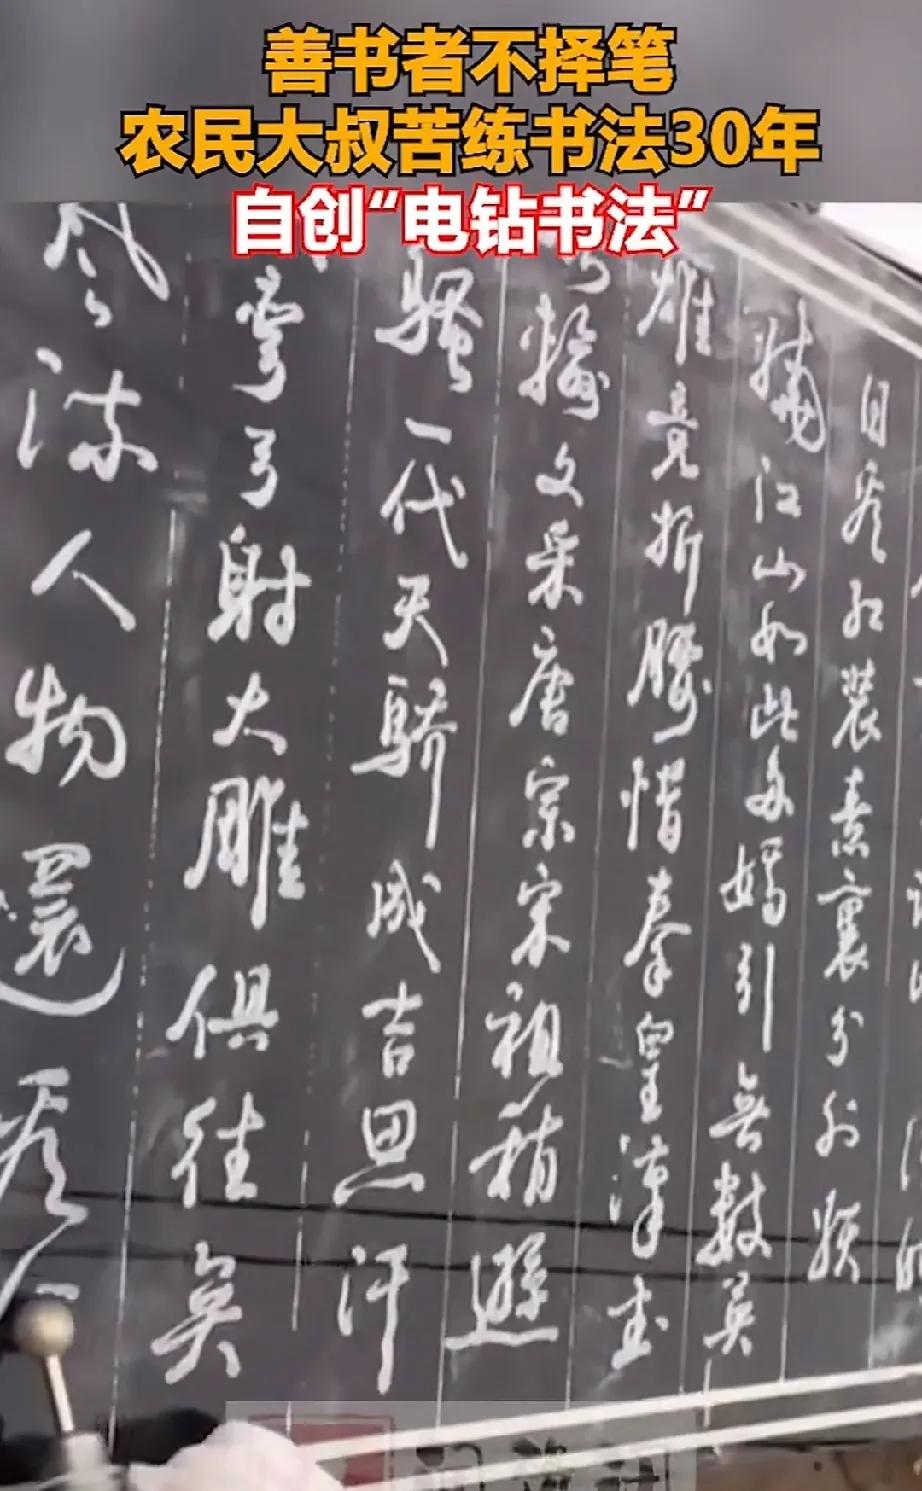 善书者不择笔
农民大叔苦练书法30年
自创“电钻书法”
日看红装素裹分外妖
嬈江山如此多嬌引無數英
雄竞折腰惜秦皇漢武
輸文采唐宗宋祖稍遜
騷一代天驕成吉思汗
彎弓射大雕俱往矣
風流人物還看今